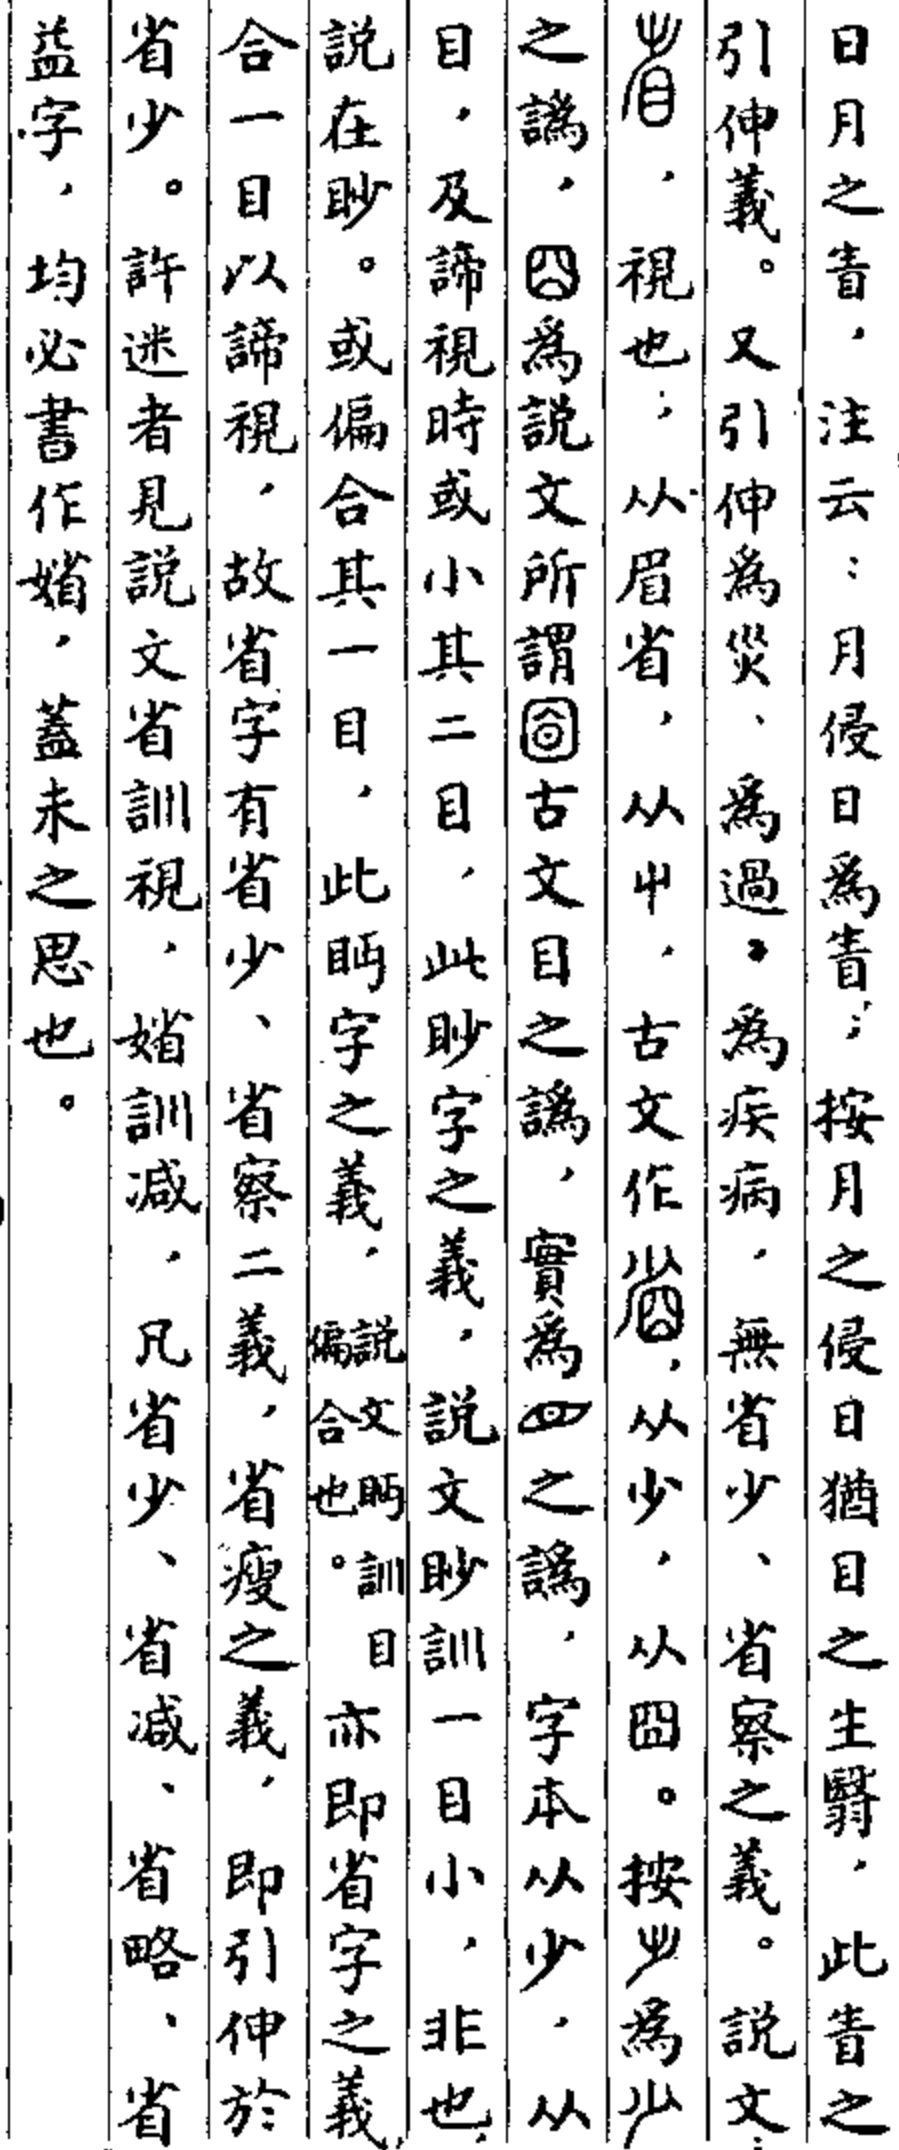 日月之眚，注云：月侵日爲眚；按月之侵日猶目之生翳，此眚之
引伸義。又引伸爲災、爲過、爲疾病，無省少、省察之義。説文：
，視也；从眉省，从屮，古文作，从少，从囧。按爲
之譌，爲説文所謂古文目之譌，實爲之譌，字本从少，从
目，及諦視時或小其二目，此眇字之義，説文眇訓一目小，非也，
説在眇。或偏合其一目，此眄字之義，説文眄訓目偏合也。亦即省字之義，
合一目以諦視，故省字有省少、省察二義，省瘦之義，即引伸於
省少。許迷者見説文省訓視，媘訓減，凡省少、省減、省略、省
益字，均必書作媘，蓋未之思也。